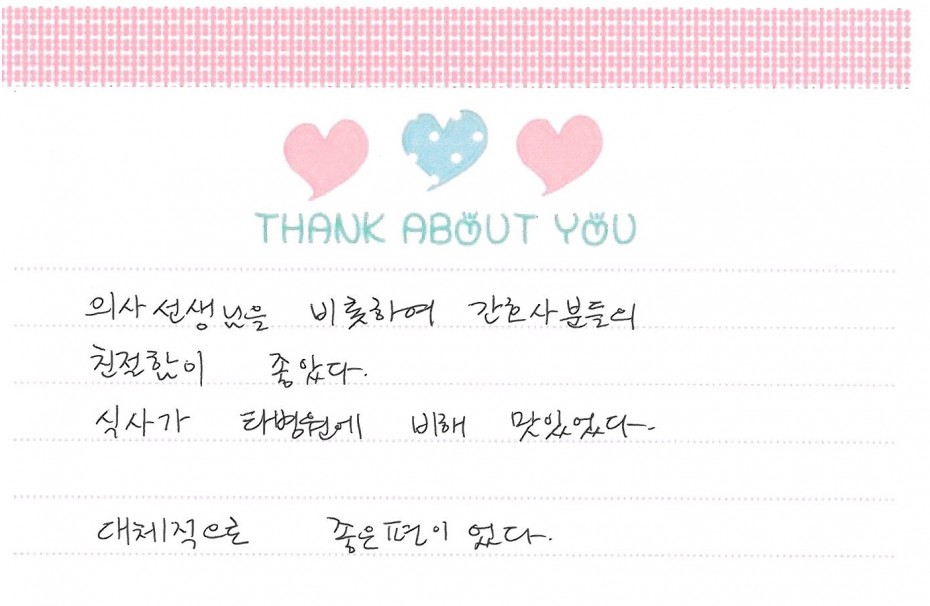 THANK ABOUT YOU
의사선생님을 비롯하여 간호사분들의
친절함이 좋았다.
식사가 타병원에 비해 맛있었다.
대체적으로 좋은편이 었다.